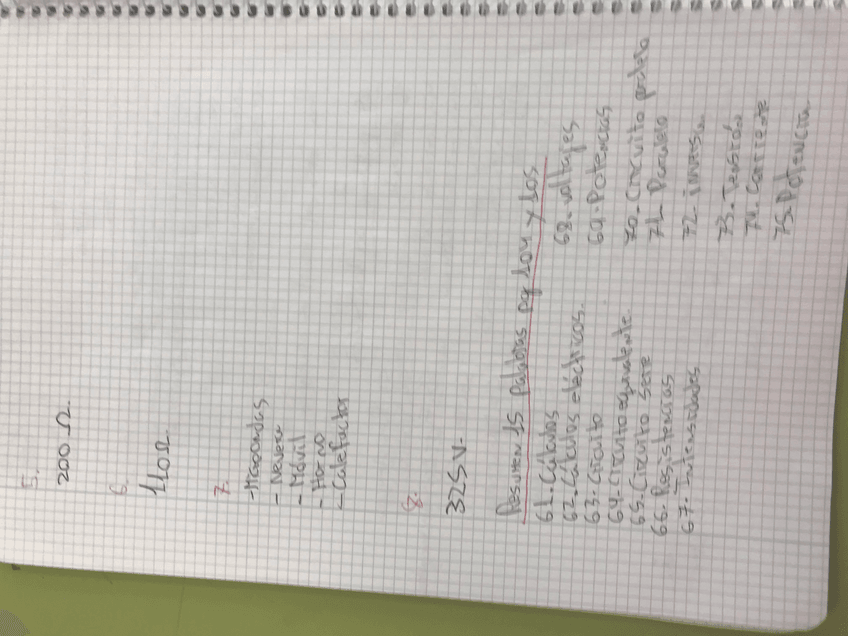 5.
200 Ω.
6.
110Ω
7.
-Microondas
- Nevera
- Móvil
- Horno
- Calefactor
8.
325 V.
Resumen 15 palabras pg 104 y 105
61. Cálculos
62. Cálculos eléctricos.
63. Circuito
64. Circuito equivalente
65. Circuito Serie
66. Resistencias
67. Intensidades
68. voltajes
69. Potencias
70. Circuito
71. Paralelo
72.
73. Tensión
74. Corriente
75. Potencia